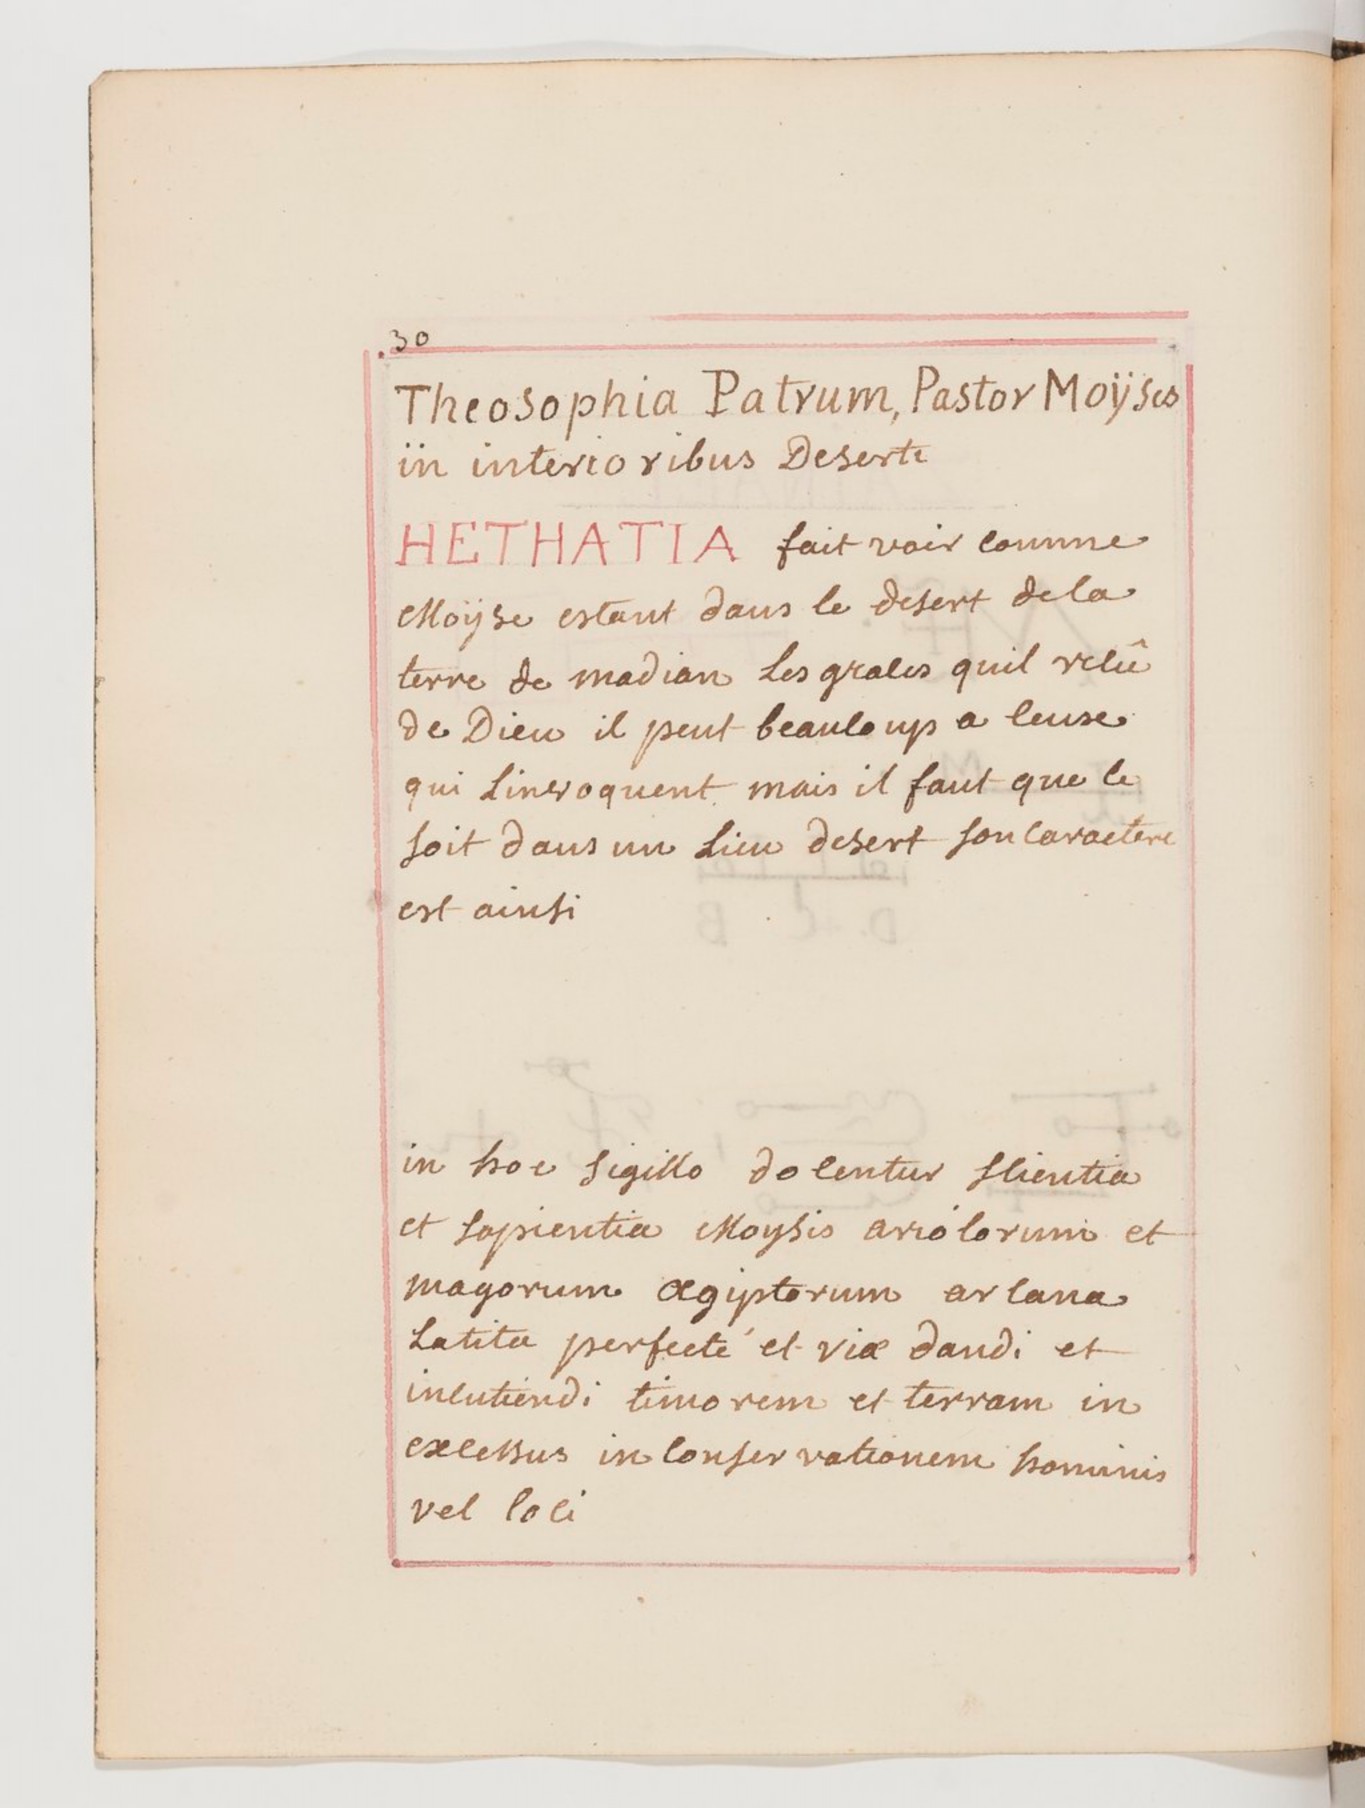 30
Theosophia Patrum, Pastor Moÿses
ïn interioribus Deserti
HETHATIA fait voir comme
Moÿse estant dans le desert de la
terre de madian Les graces quil relû
de Dieu il peut beaucoup a ceuse
qui Linvoquent mais il faut que ce
soit dans un Lieu desert son caractere
est ainsi
in hoc sigillo docentur scientia
et sapientia Moysis ariolorum et
magorum ægiptorum arcana
Latita perfecté et viæ dandi et
incutiendi timorem et terram in
excessus in conservationem hominis
vel loci